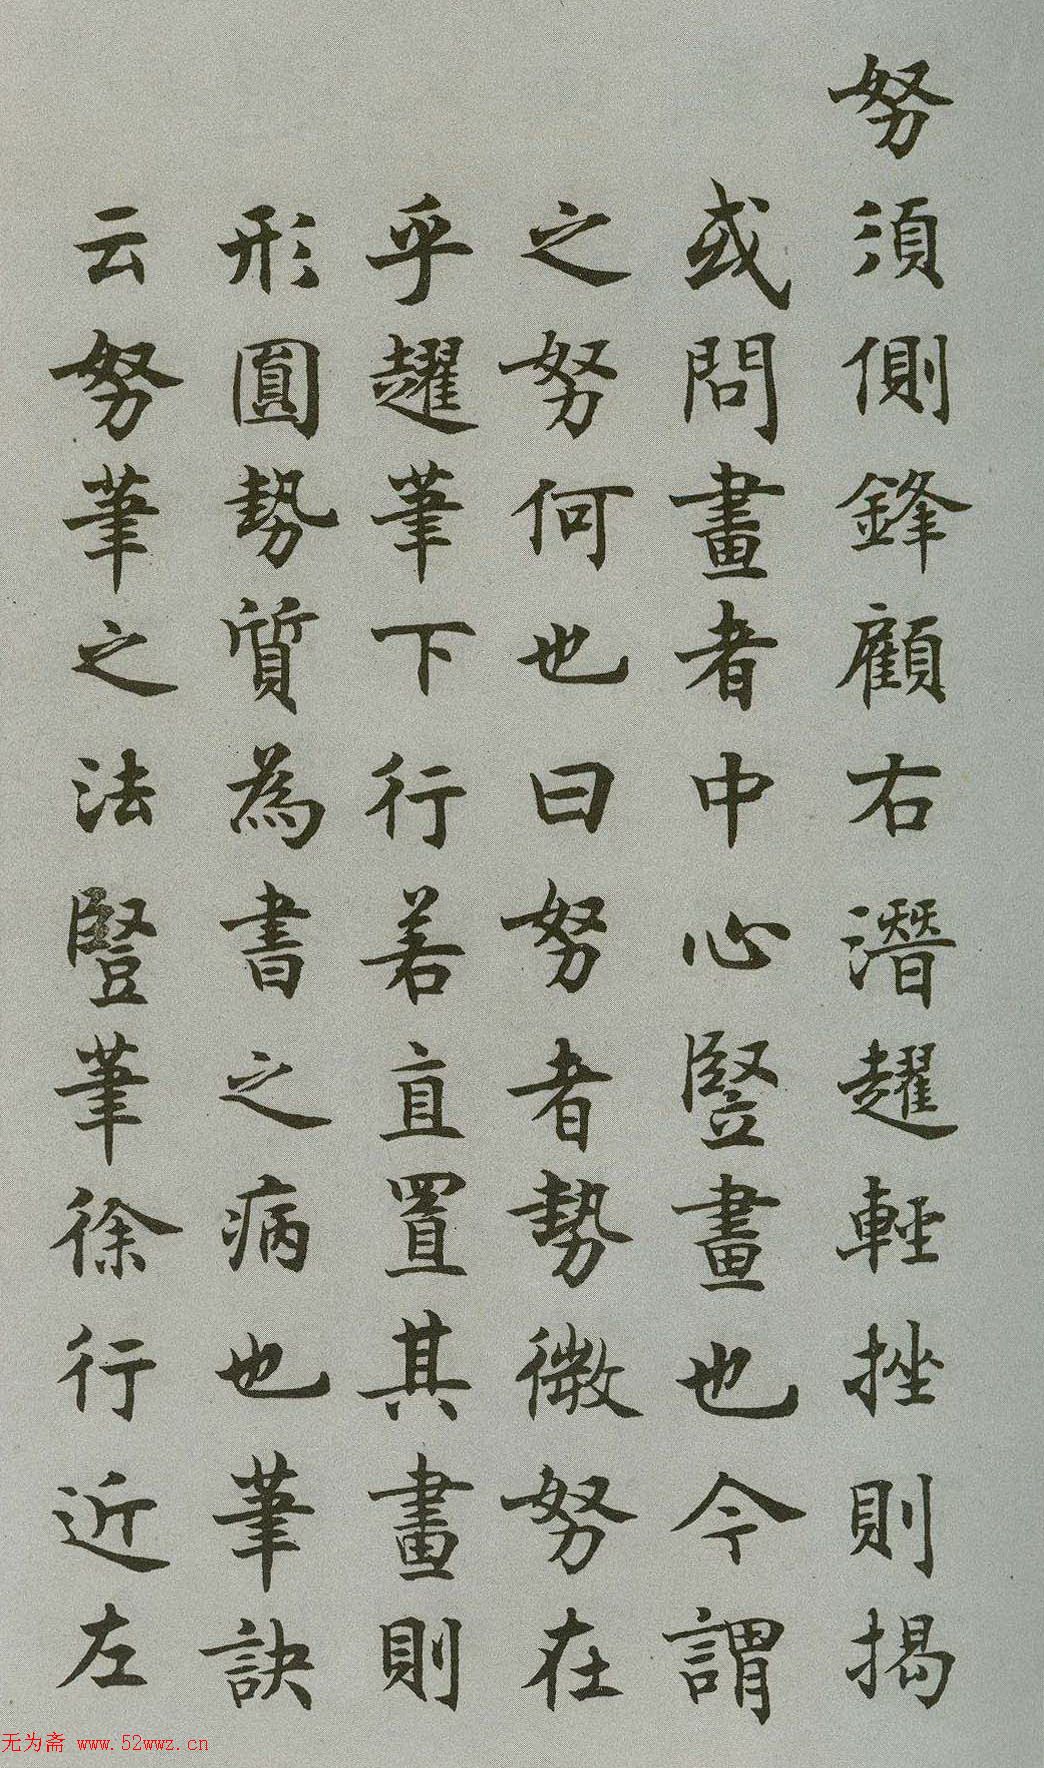 努須側鋒顧右潛趯輕挫則揭
或問畫者中心豎畫也今謂
之努何也曰努者勢微努在
乎趯筆下行若直置其畫則
形圓勢質為書之病也筆訣
云努筆之法豎筆徐行近左
无为斋 www.52wwz.cn